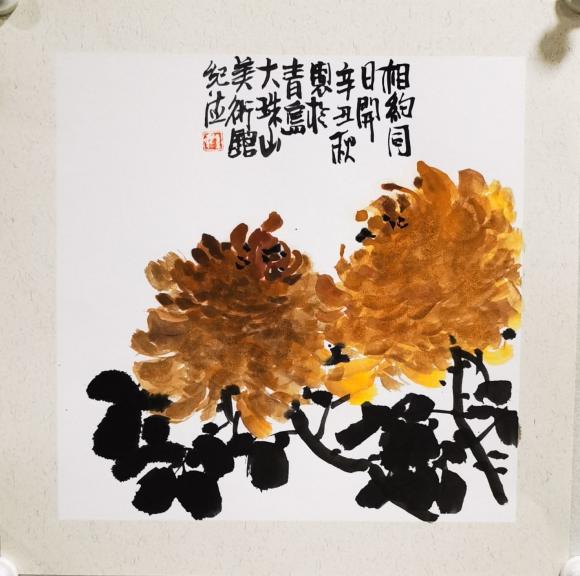 相約同
日開
辛丑秋
製於
青島
大珠山
美術館
纪法